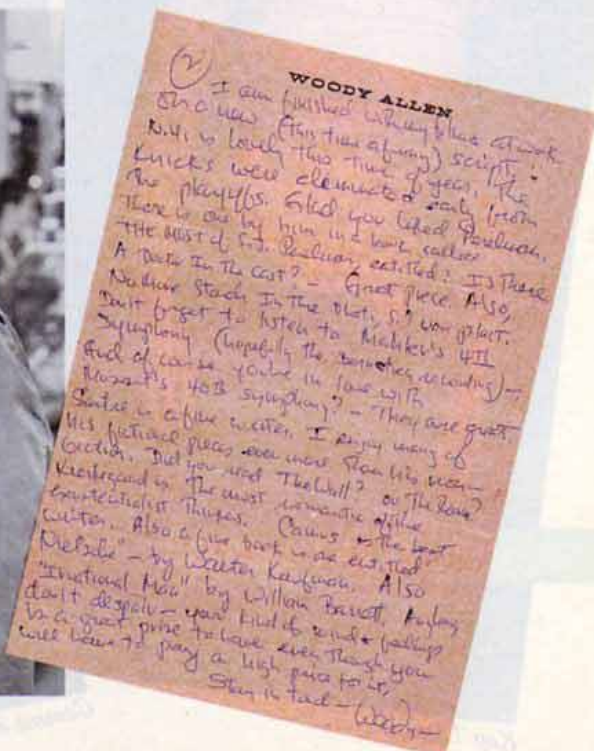 WOODY ALLEN
(2)
I am finished with my films at work
on a new (this time funny) script.
N.Y. is lovely this time of year, The
Knicks were eliminated early from
the playoffs. Glad you liked Perelman.
There is one by him in a book called
THE MOST of S.J. Perelman, entitled: Is There
A Doctor In The Cast? — Great piece. Also,
Nothing in The
Don't forget to listen to Mahler's 4TH
Symphony (hopefully the Bernstein recording) —
And of course you're in love with
Mozart's 40th symphony? — They are great.
Sartre is a fine writer. I enjoy many of
his fictional pieces even more than his non-
fiction. Did you read The Wall? or The
Kierkegaard is the most romantic of the
existentialist Thinkers. Camus the best
writer. Also a fine book is one entitled
Nietzsche" — by Walter Kaufman. Also
"Irrational Man" by William Barrett.
don't despair — your kind of mind & feelings
is a great prize to have even though you
will have to pay a high price for it,
Stay in touch — Woody —